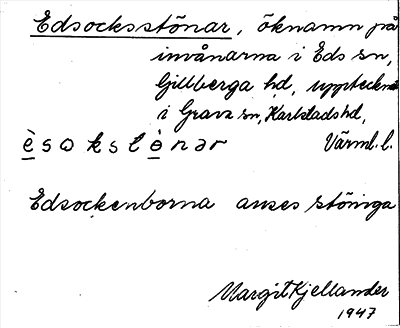 Edsocksstönar, öknamn på
invånarna i Eds sn,
Gillberga hd, uppteckn
i Grava sn, Karlstads hd,
Värml. l.
Edsockenborna anses stöniga
Margit Kjellander
1947